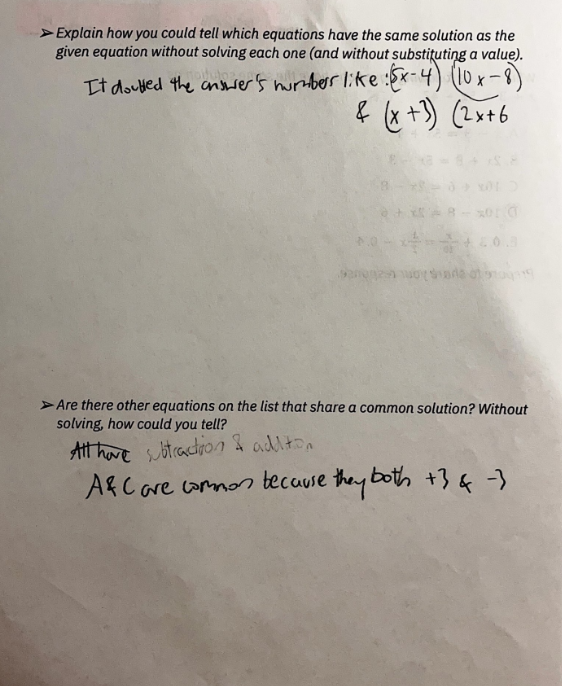 ➢ Explain how you could tell which equations have the same solution as the
given equation without solving each one (and without substituting a value).
It doubled the answer's number like: (5x-4) (10x-8)
& (x+3) (2x+6
➢ Are there other equations on the list that share a common solution? Without
solving, how could you tell?
All have subtraction & additon
A & C are common because they both +3 & -3